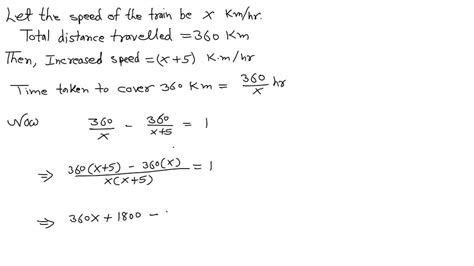 Let the speed of the train be x Km/hr.
Total distance travelled = 360 Km
Then, Increased speed = (x+5) K.m/hr
Time taken to cover 360 Km = 360/x hr
Now 360/x - 360/(x+5) = 1
⇒ (360(x+5) - 360(x))/(x(x+5)) = 1
⇒ 360x + 1800 -